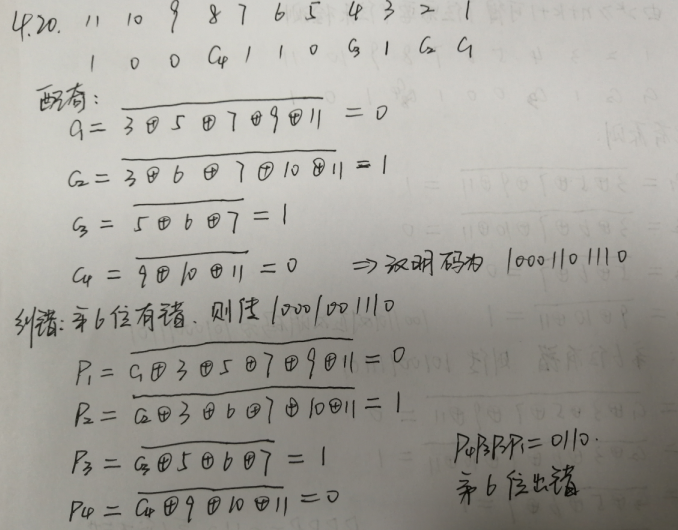 4.20. 11 10 9 8 7 6 5 4 3 2 1
1 0 0 C4 1 1 0 C3 1 C2 C1
配奇:
C1 = 3⊕5⊕7⊕9⊕11 = 0
C2 = 3⊕6⊕7⊕10⊕11 = 1
C3 = 5⊕6⊕7 = 1
C4 = 9⊕10⊕11 = 0 ⇒ 汉明码为 10001101110
纠错: 第6位有错, 则传 10001001110
P1 = C1⊕3⊕5⊕7⊕9⊕11 = 0
P2 = C2⊕3⊕6⊕7⊕10⊕11 = 1
P3 = C3⊕5⊕6⊕7 = 1
P4 = C4⊕9⊕10⊕11 = 0
P4P3P2P1 = 0110.
第6位出错